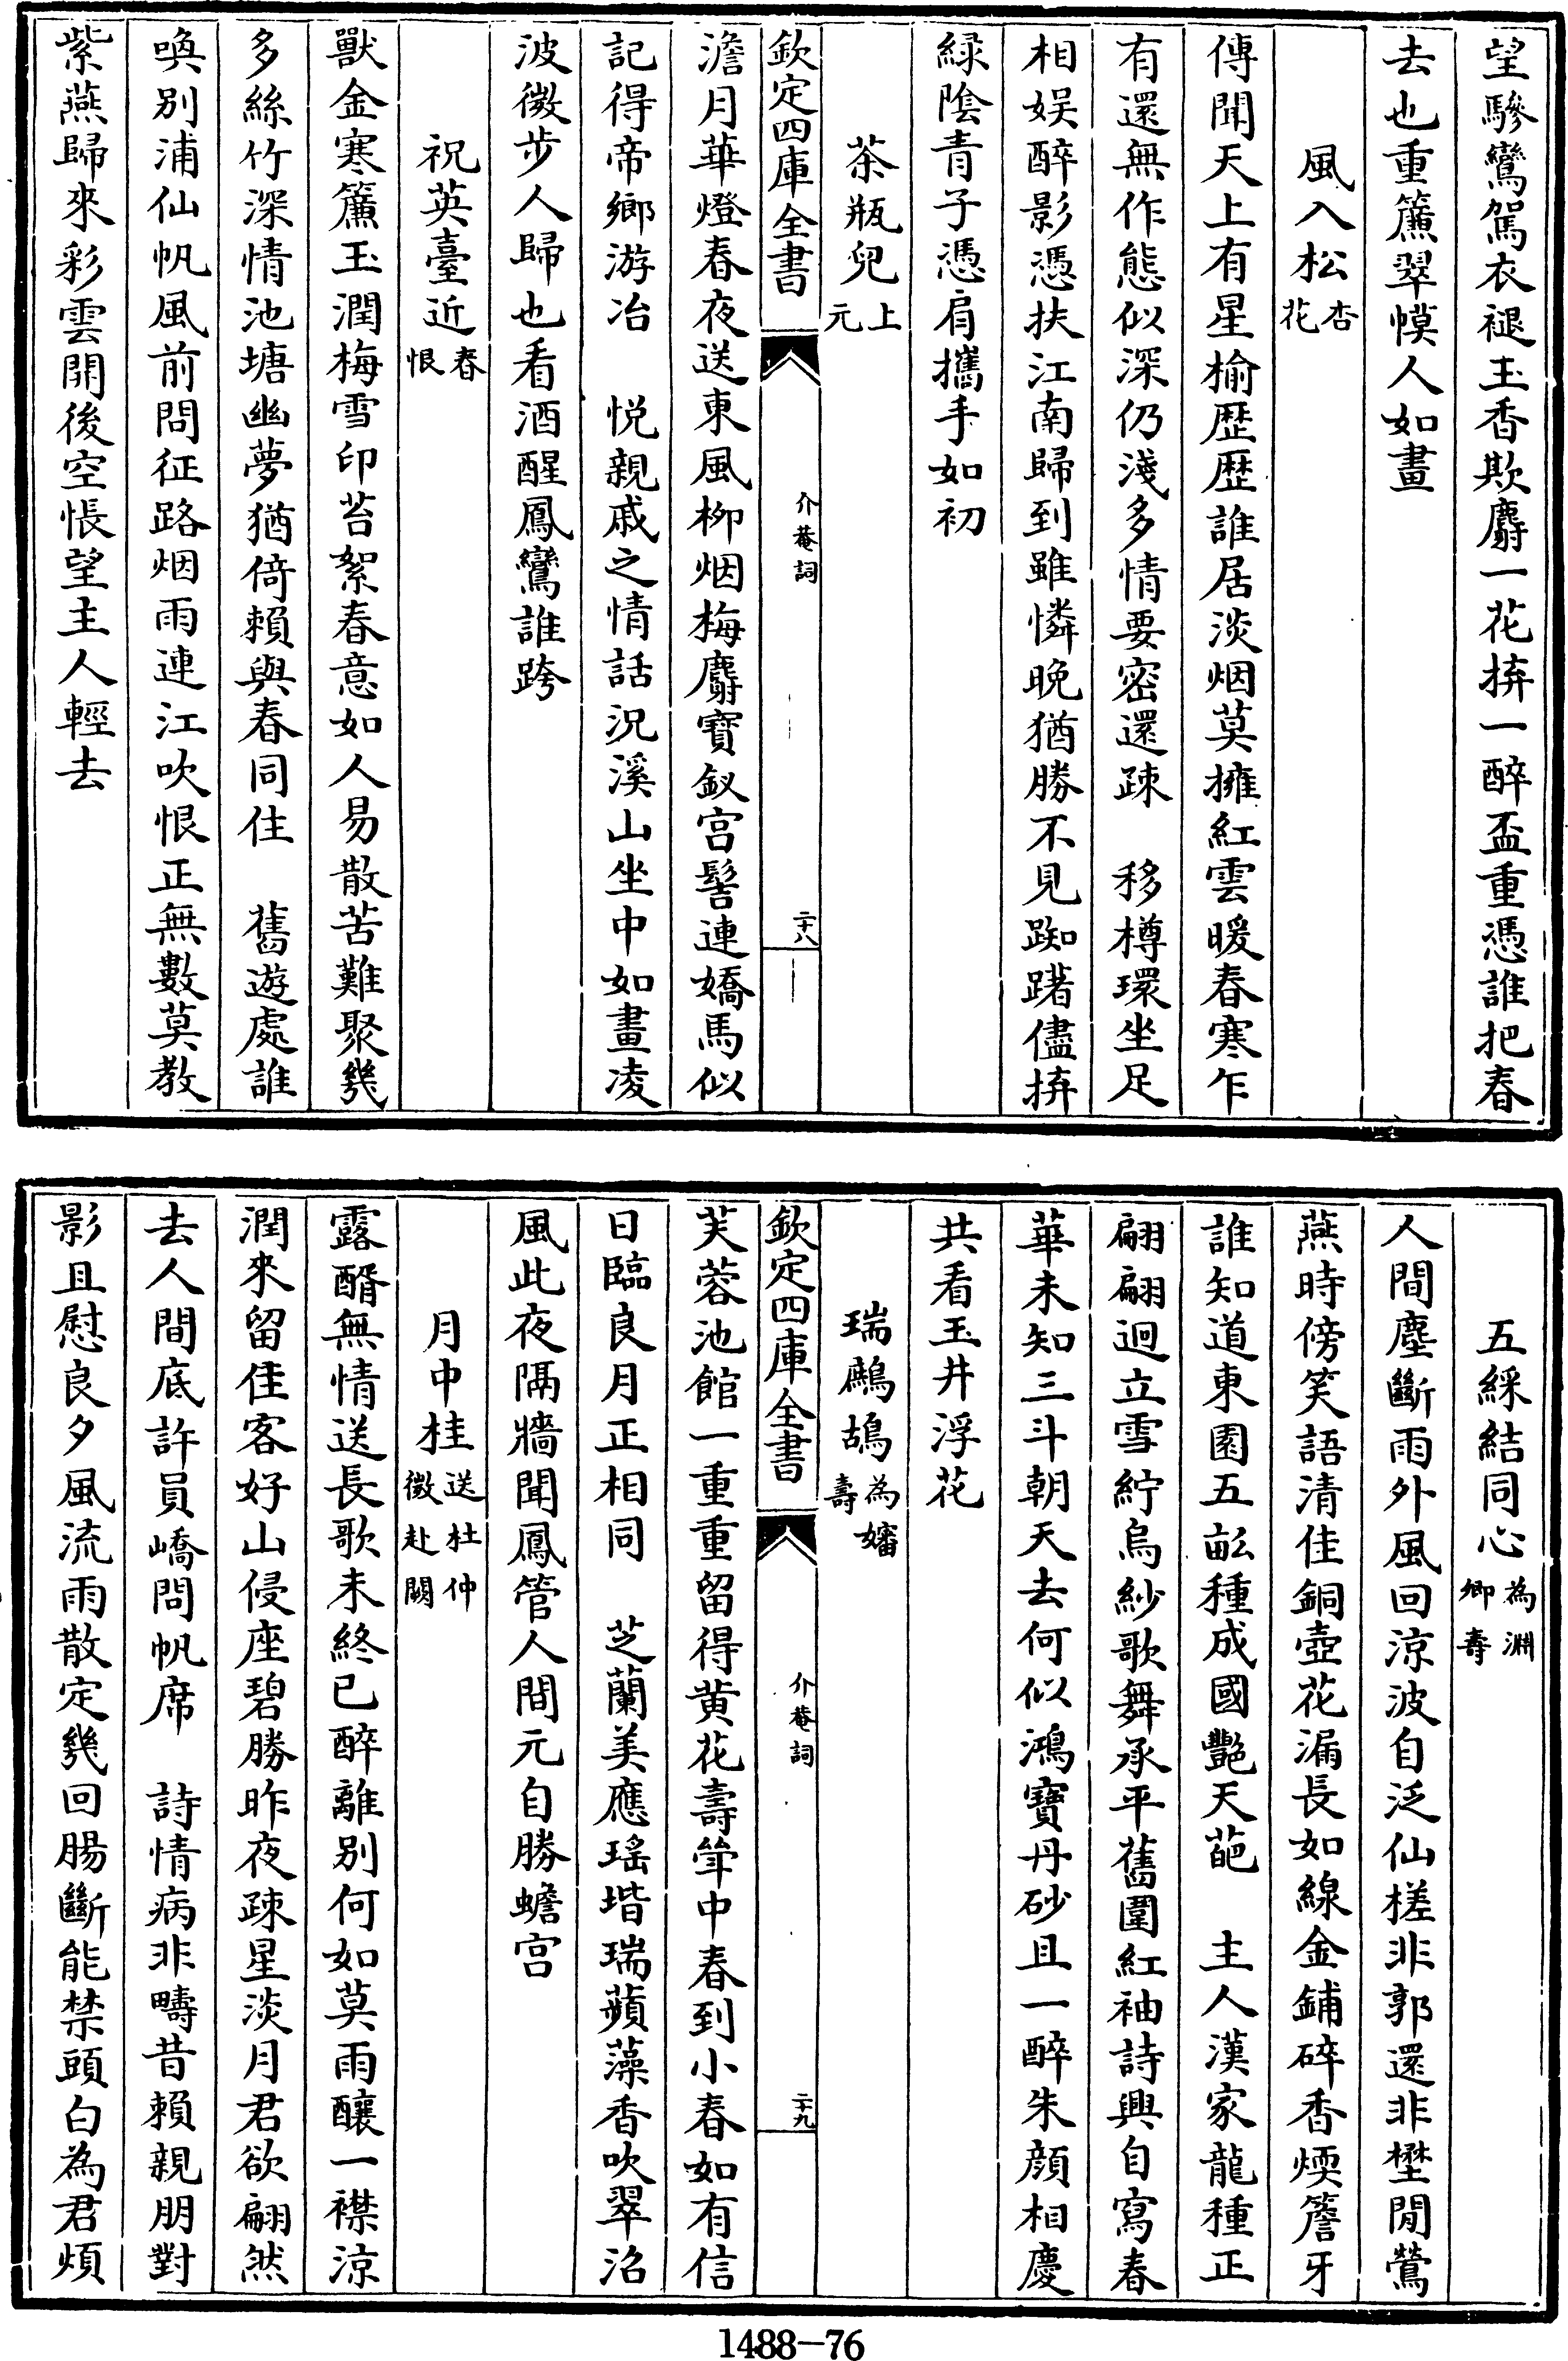 望驂鸞駕衣褪玉香欺麝一花拚一醉盃重憑誰把春
去也重簾翠幙人如畫
風入松杏花
傳聞天上有星榆歷歷誰居淡烟莫擁紅雲暖春寒乍
有還無作態似深仍淺多情要密還疎　移樽環坐足
相娱醉影憑扶江南歸到雖憐晚猶勝不見踟躇儘拚
緑陰青子憑肩攜手如初
茶瓶兒上元
欽定四庫全書
介菴詞
二十八
澹月華燈春夜送東風柳烟梅麝寶釵宫髻連嬌馬似
記得帝鄉游冶　悦親戚之情話況溪山坐中如畫凌
波微步人歸也看酒醒鳳鸞誰跨
祝英臺近春恨
獸金寒簾玉潤梅雪印苔絮春意如人易散苦難聚幾
多絲竹深情池塘幽夢猶倚賴與春同住　舊遊處誰
喚别浦仙帆風前問征路烟雨連江吹恨正無數莫教
紫燕歸來彩雲開後空悵望主人輕去
五綵結同心為淵卿壽
人間塵斷雨外風回涼波自泛仙槎非郭還非壄閒鶯
燕時傍笑語清佳銅壺花漏長如線金鋪碎香煗簷牙
誰知道東園五畝種成國艷天葩　主人漢家龍種正
翩翩迥立雪紵烏紗歌舞承平舊圍紅袖詩興自寫春
華未知三斗朝天去何似鴻寶丹砂且一醉朱顔相慶
共看玉井浮花
瑞鷓鴣為嬸壽
欽定四庫全書
介菴詞
二十九
芙蓉池館一重重留得黄花壽斝中春到小春如有信
日臨良月正相同　芝蘭美應瑶堦瑞蘋藻香吹翠沼
風此夜隔牆聞鳳管人間元自勝蟾宫
月中桂送杜仲微赴闕
露醑無情送長歌未終已醉離别何如莫雨釀一襟涼
潤來留佳客好山侵座碧勝昨夜疎星淡月君欲翩然
去人間底許員嶠問帆席　詩情病非疇昔賴親朋對
影且慰良夕風流雨散定幾回腸斷能禁頭白為君煩
1488-76